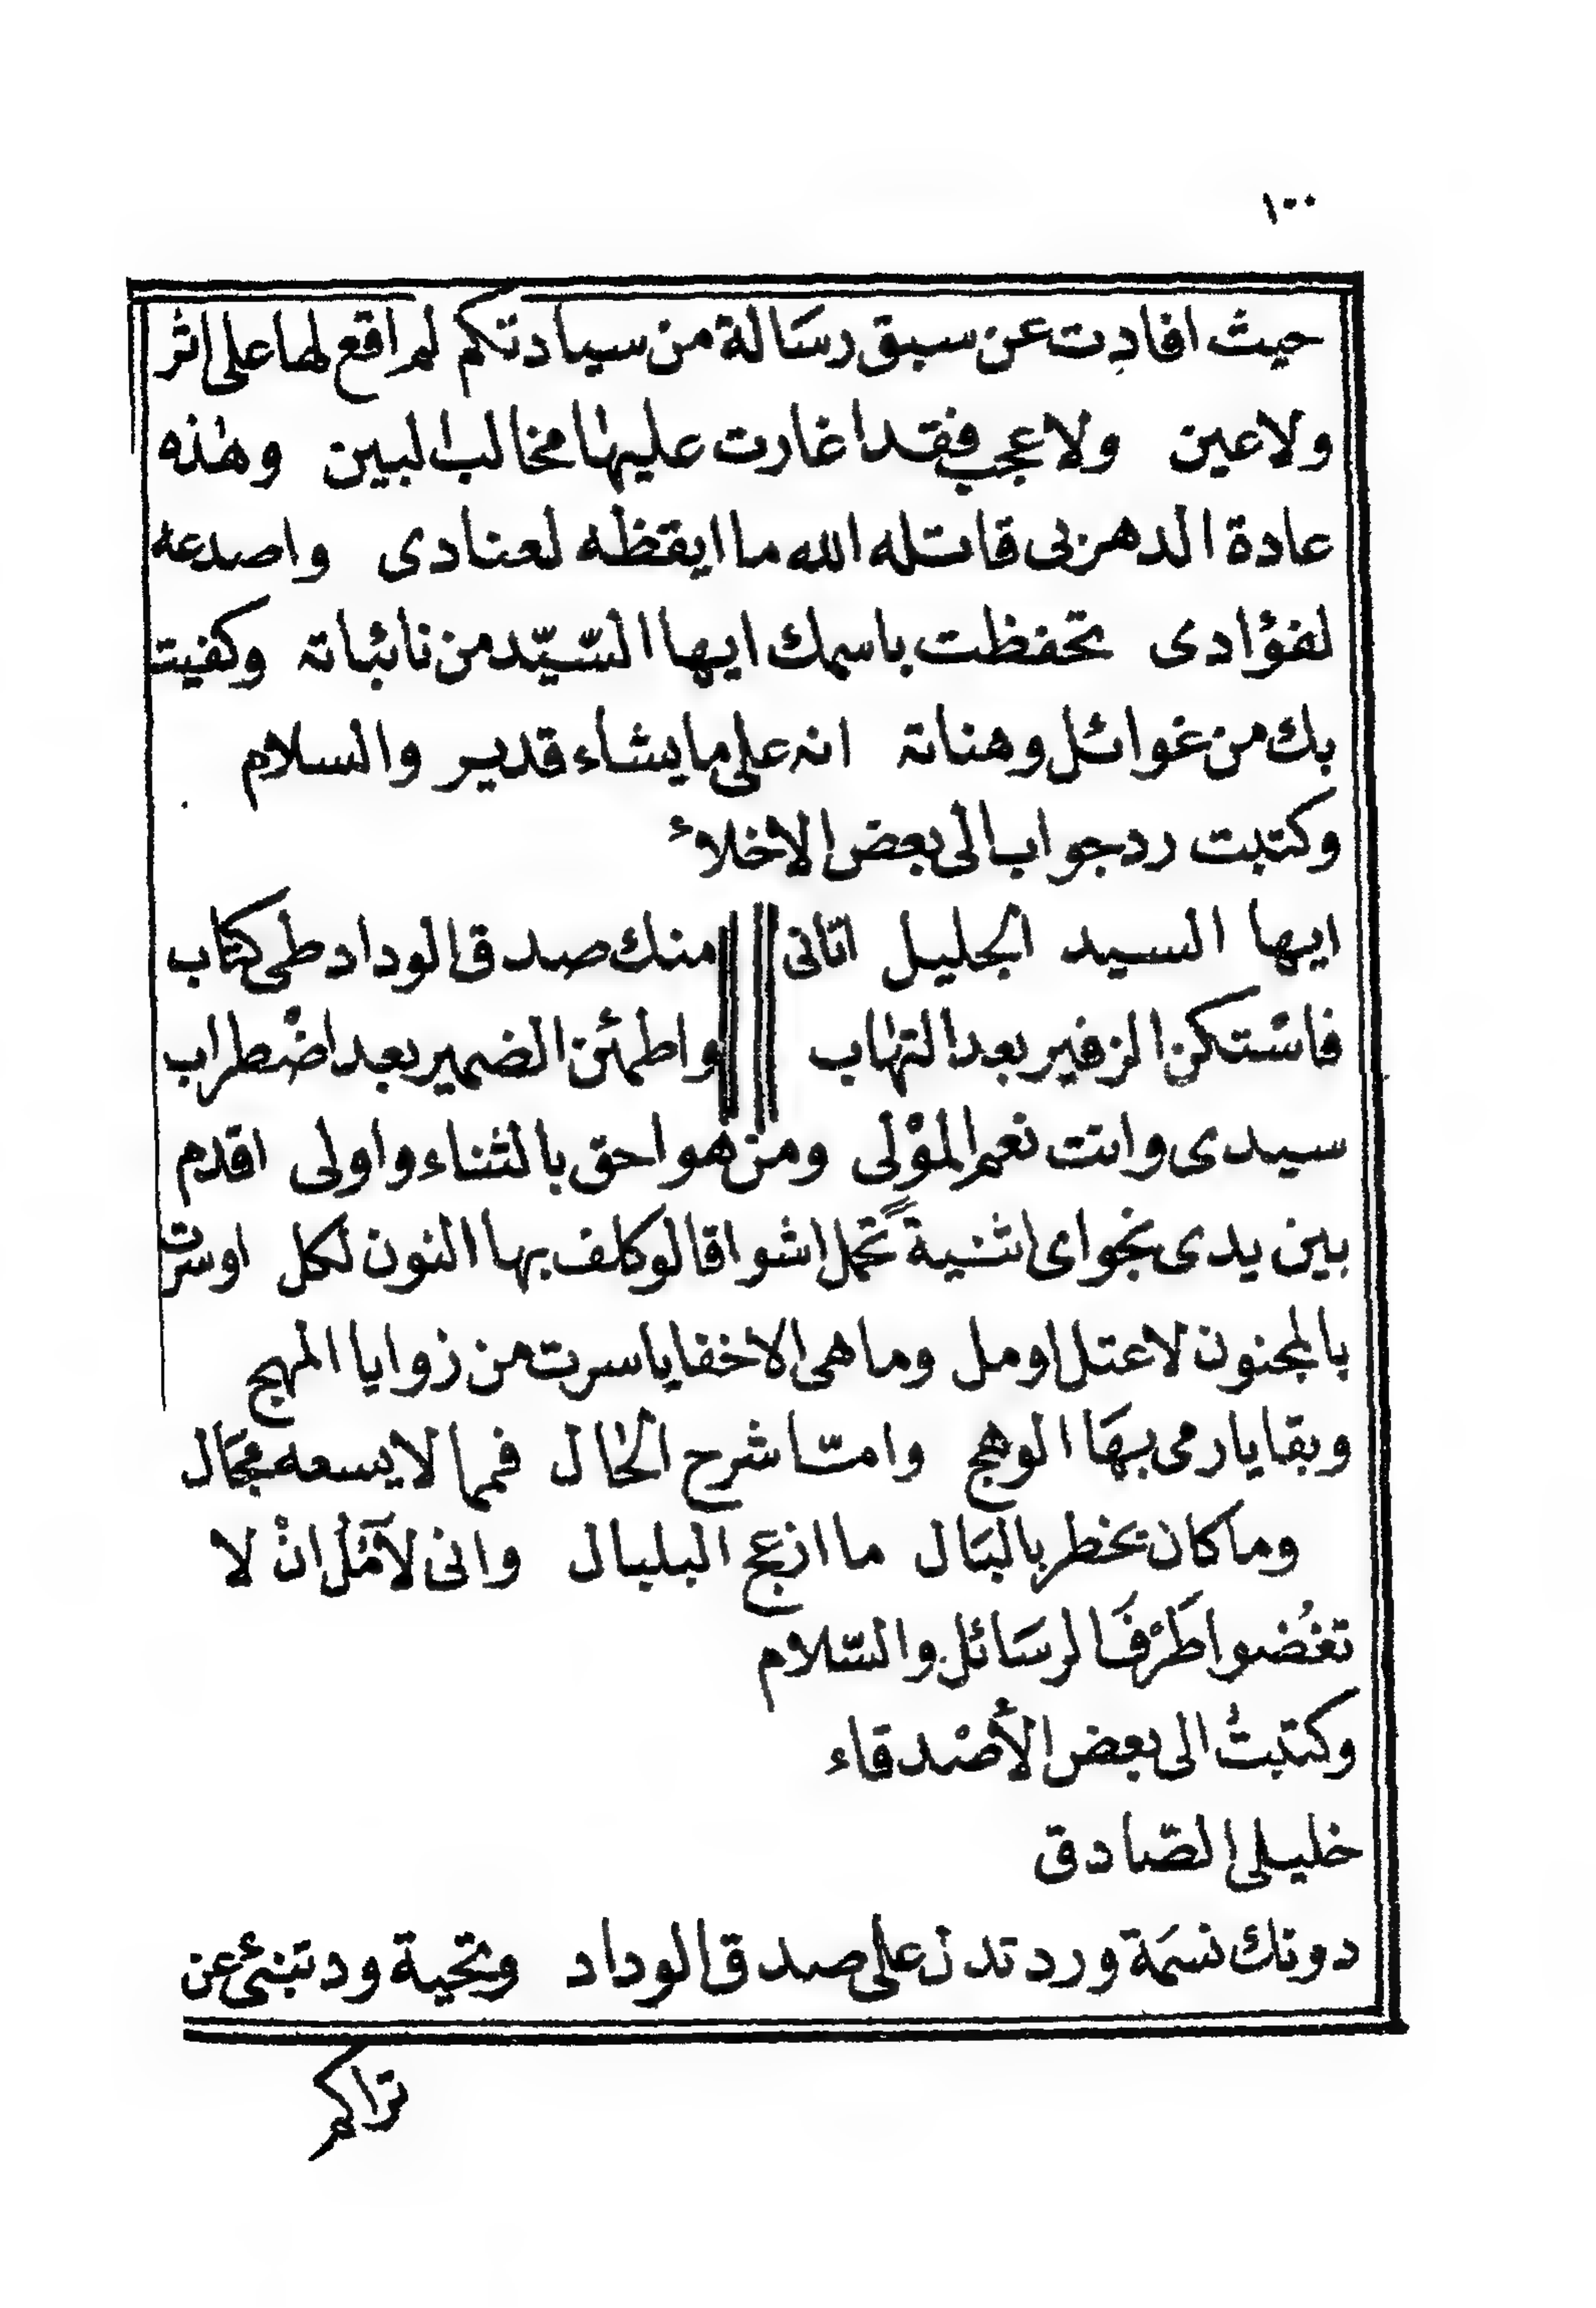 ١٠٠
حيث افادت عن سبق رسَالة من سيادتكم لم اقع لها على اثر
ولا عين ولا عجب فقد اغارت عليها مخالب البين وهذه
عادة الدهر بى قاتله الله ما ايقظه لعنادى واصدعه
لفؤادى تحفظت باسمك ايها السّيّد من نائباته وكفيت
بك من غوائل وهناته انه على ما يشاء قدير والسلام
وكتبت رد جواب الى بعض الاخلاء
ايها السيد الجليل اتانى منك صدق الوداد طى كتاب
فاسْتكن الزفير بعد التهاب واطمئن الضمير بعد اضْطراب
سيدى وانت نعم الموْلى ومن هو احق بالثناء واولى اقدم
بين يدى نجواى اثنيةً تحمل اشواقا لو كلف بها النون لكل اوسرت
بالمجنون لاعتل او مل وما هى الا خفايا سرت من زوايا المهج
وبقايا رمى بهَا الوهج وامّا شرح الحال فمما لا يسعه مجَال
وما كان يخطر بالبَال ما ازعج البلبال وانى لآمُل انْ لا
تغُضوا طَرْفَ الرسَائل والسّلام
وكتبتُ الى بعض الأصْدقاء
خليلى الصّادق
دونك نسَمة ورد تدل على صدق الوداد وتحية ود تنبئ عن
تراكم